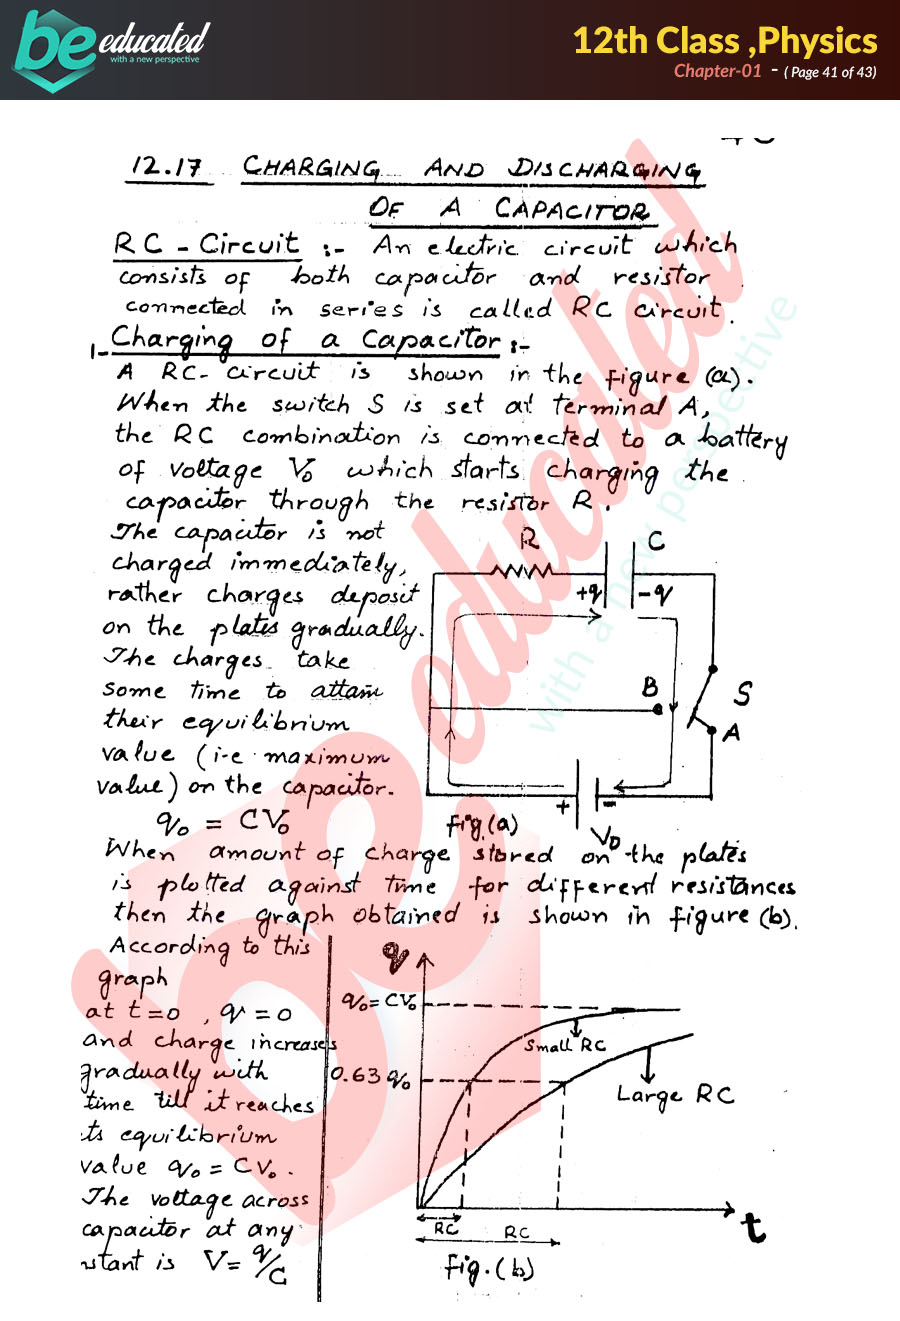 be educated
with a new perspective
12th Class ,Physics
Chapter-01 - ( Page 41 of 43)
12.17 CHARGING AND DISCHARGING
OF A CAPACITOR
RC - Circuit :- An electric circuit which
consists of both capacitor and resistor
connected in series is called RC circuit.
1- Charging of a Capacitor :-
A RC- circuit is shown in the figure (a).
When the switch S is set at terminal A,
the RC combination is connected to a battery
of voltage V₀ which starts charging the
capacitor through the resistor R.
The capacitor is not
charged immediately,
rather charges deposit
on the plates gradually.
The charges take
some time to attain
their equilibrium
value (i-e maximum
value) on the capacitor.
q₀ = CV₀
R C
+q -q
B S
A
+ -
V₀
fig.(a)
When amount of charge stored on the plates
is plotted against time for different resistances
then the graph obtained is shown in figure (b).
According to this
graph
at t=0 , q = 0
and charge increases
gradually with
time till it reaches
its equilibrium
value q₀ = CV₀.
The voltage across
capacitor at any
stant is V= q/C
q
q₀= CV₀
Small RC
0.63 q₀
Large RC
RC
RC
t
fig.(b)
be educated
with a new perspective